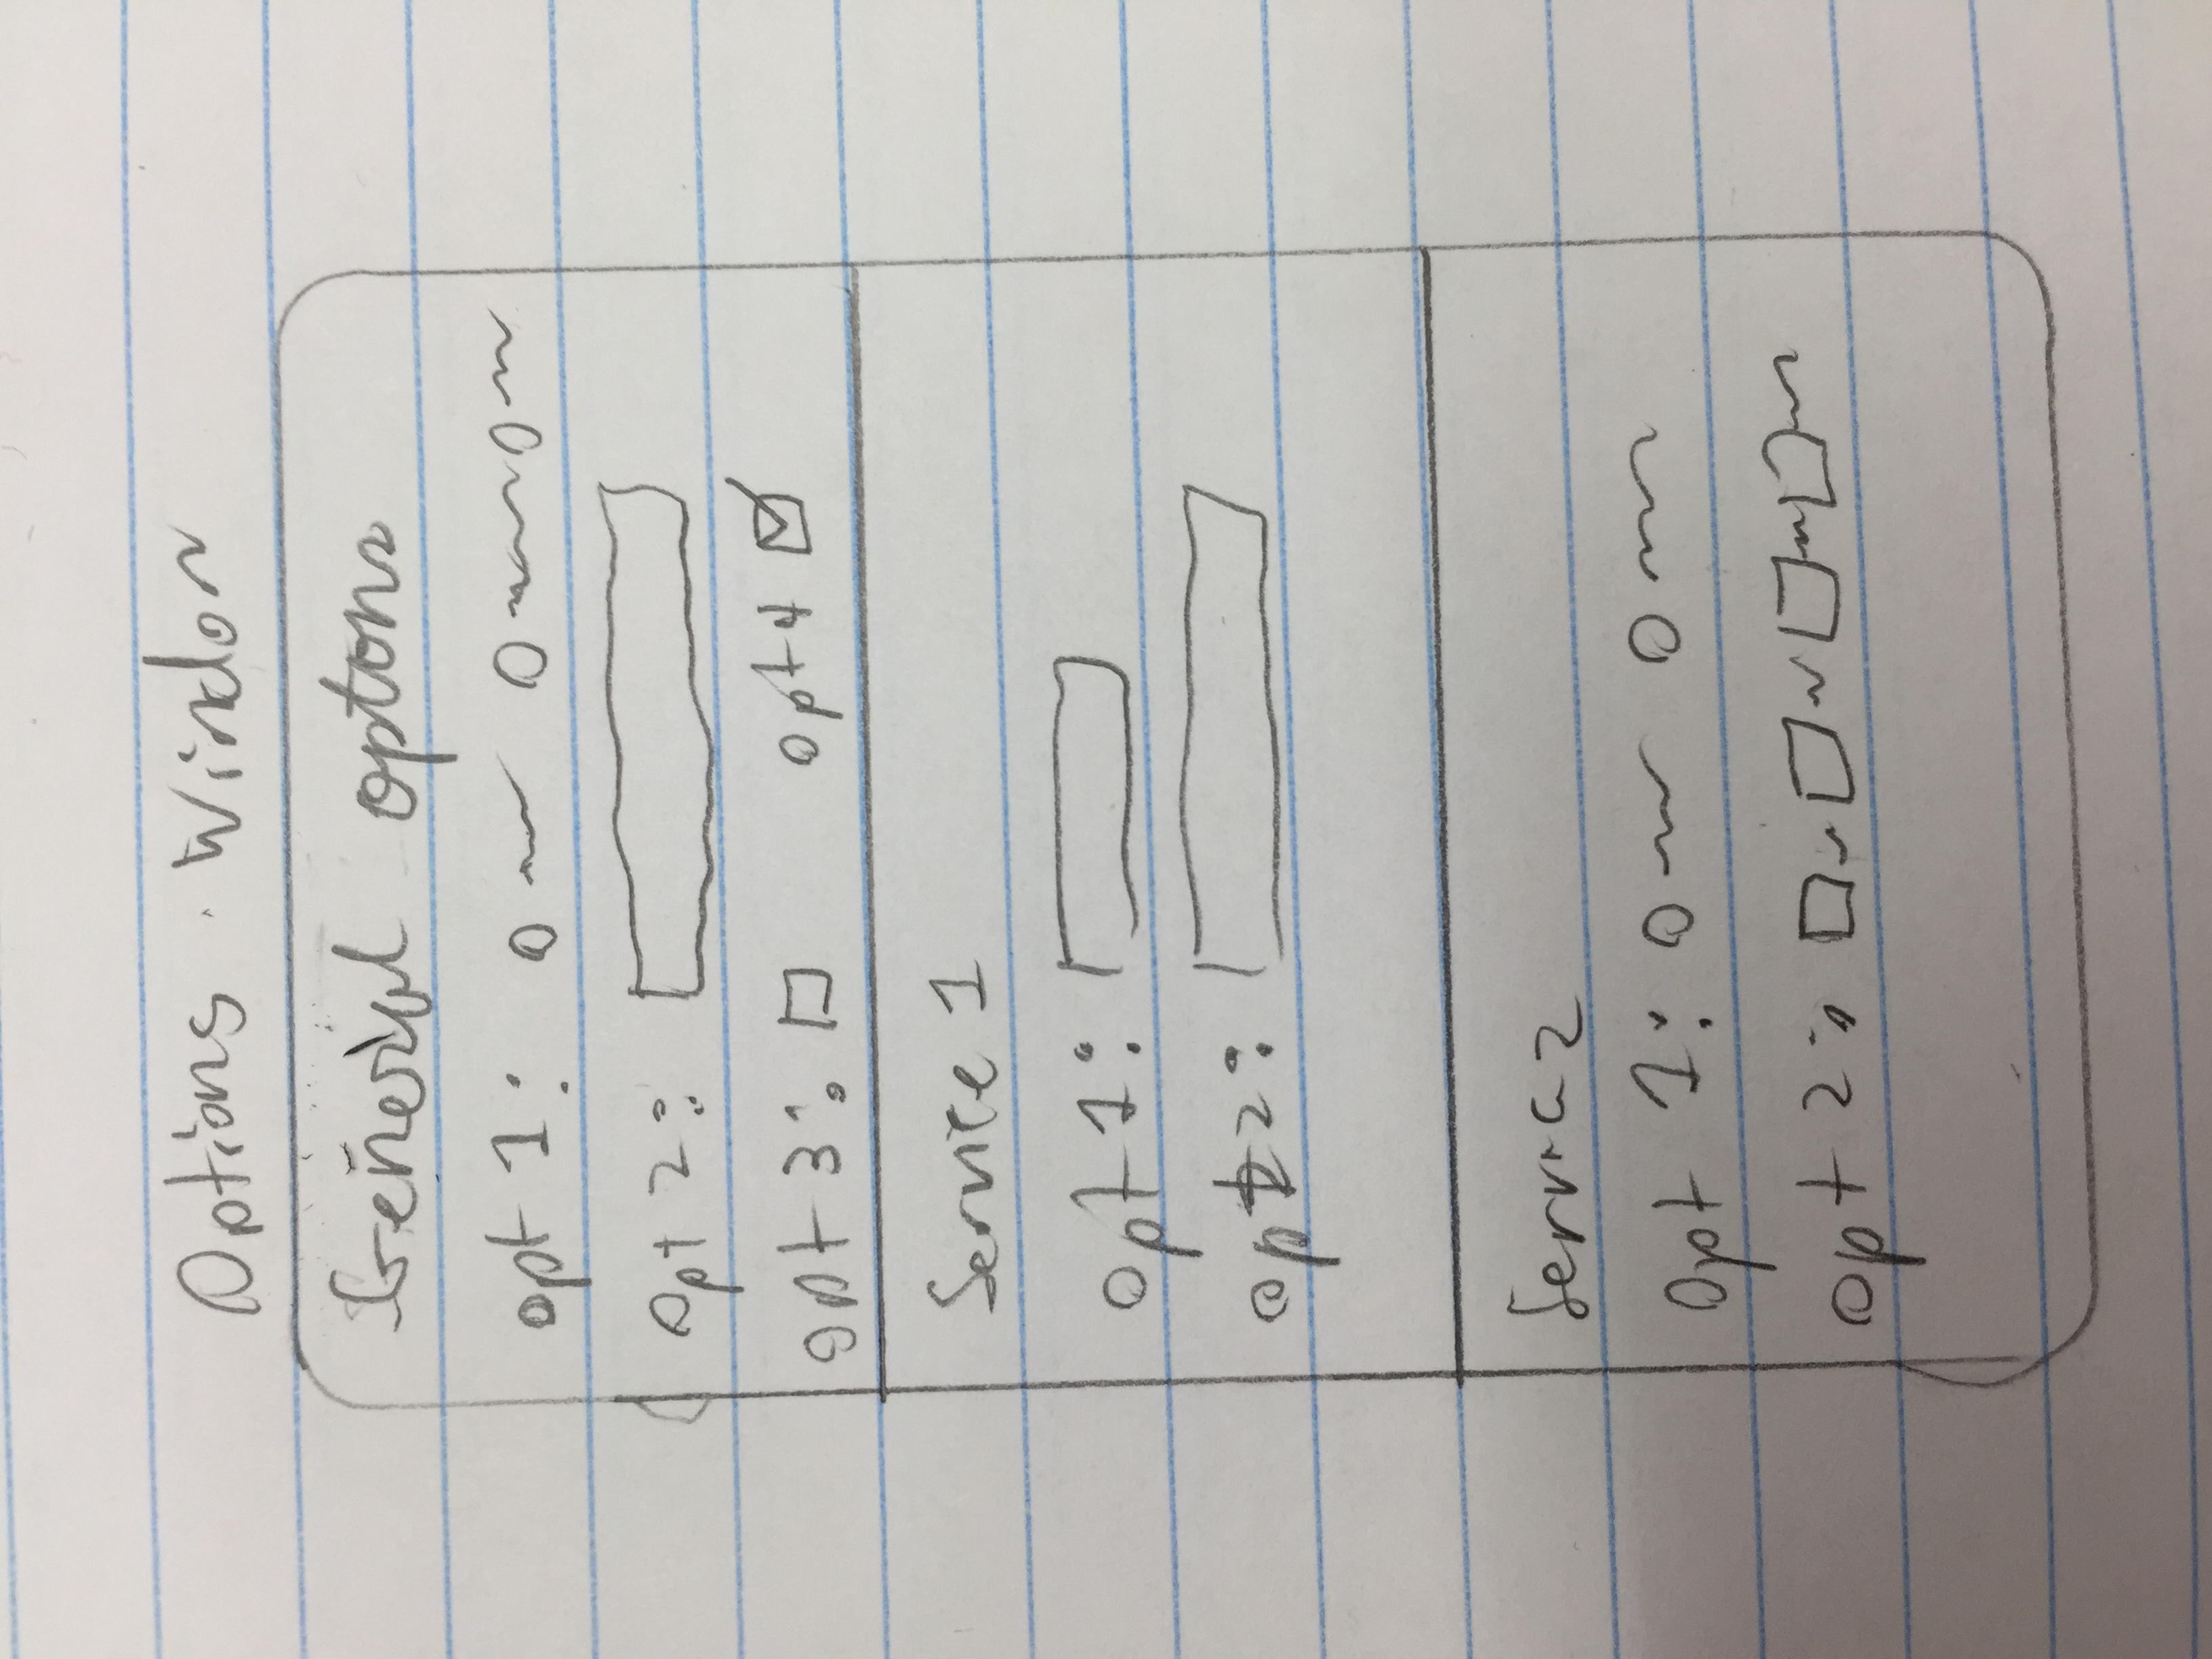 Options Window
General optons
opt 1:
Opt 2:
opt 3: opt 4
Service 1
opt 1:
opt 2:
Service 2
Opt 1:
opt 2: